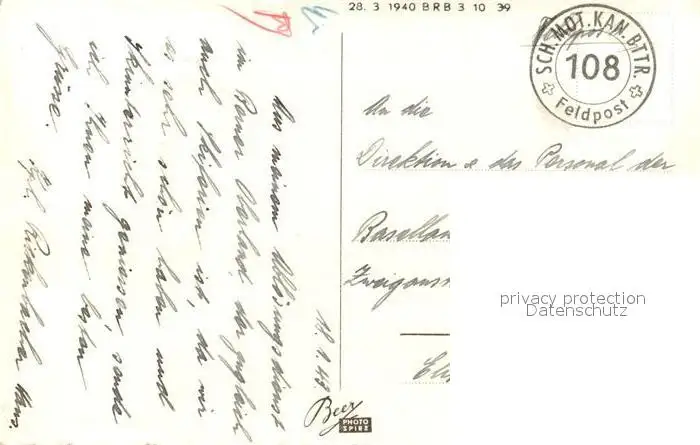 28. 3 1940 BRB 3 10 39
SCH. MOT. KAN. BTTR.
108
Feldpost
An die
Direktion & das Personal der
Basellan
Zweiganst
18.1.43.
Aus meinem Ablösungsdienst
im Berner Oberland, der zugleich
auch Skiferien ist, da wir
es sehr schön haben und
Skiunterricht geniessen sende
ich Ihnen meine besten
Grüsse.
Hans.
Beer
PHOTO
SPIEZ
privacy protection
Datenschutz